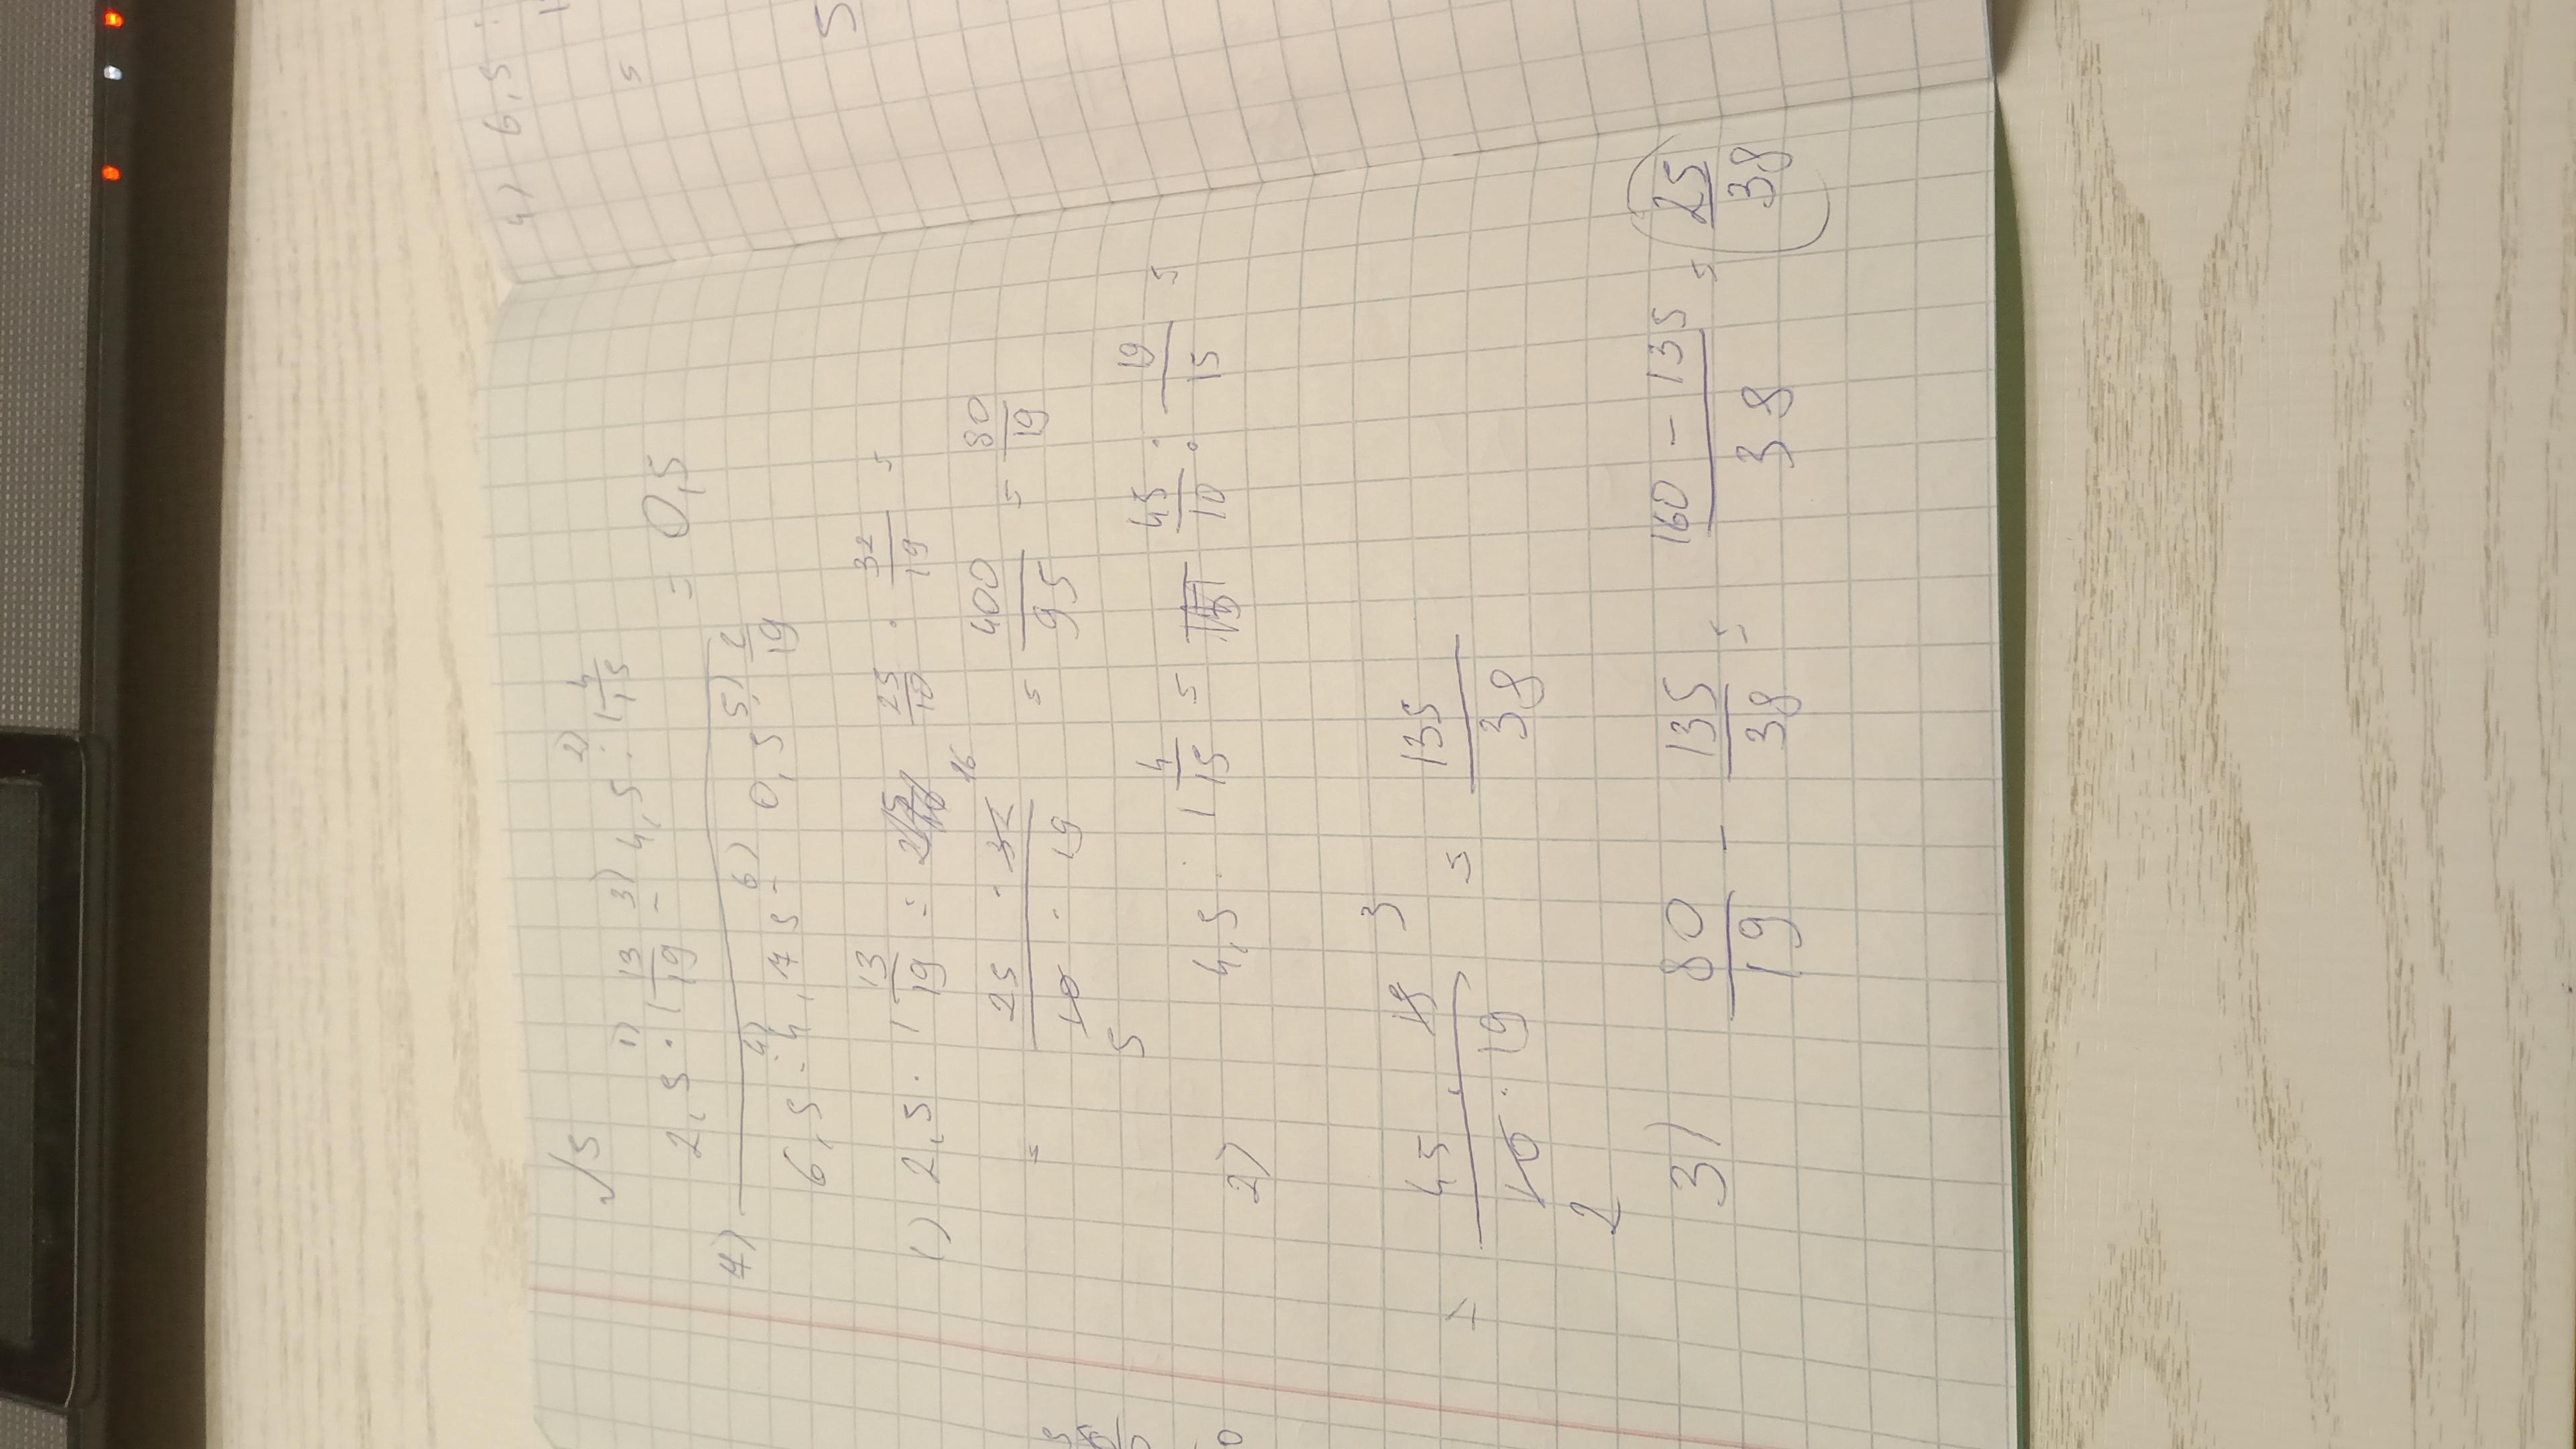 √5
2,5 · 1) 1 13/19 3) − 4,5 : 2) 1 4/15
4) = 0,5
6,5 : 4) 4,175 6) − 0,5 5) 2/19
1) 2,5 · 1 13/19 = 25/10 · 32/19 =
= 25 · 32 16 / 10 5 · 19 = 400/95 = 80/19
2) 4,5 : 1 4/15 = 45/10 : 19/15 =
= 45 · 15 3 / 10 2 · 19 = 135/38
3) 80/19 − 135/38 = 160 − 135 / 38 = 25/38
4) 6,5 :
=
5